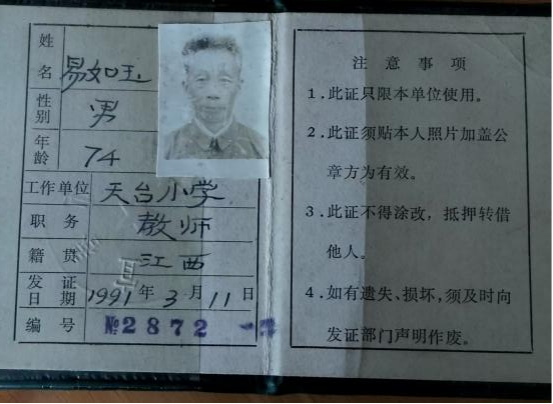 姓名 易如玉
性别 男
年龄 74
工作单位 天台小学
职务 教师
籍贯 江西
发证日期 1991年3月11日
编号 №2872
注意事项
1．此证只限本单位使用。
2．此证须贴本人照片加盖公
章方为有效。
3．此证不得涂改，抵押转借
他人。
4．如有遗失、损坏，须及时向
发证部门声明作废。